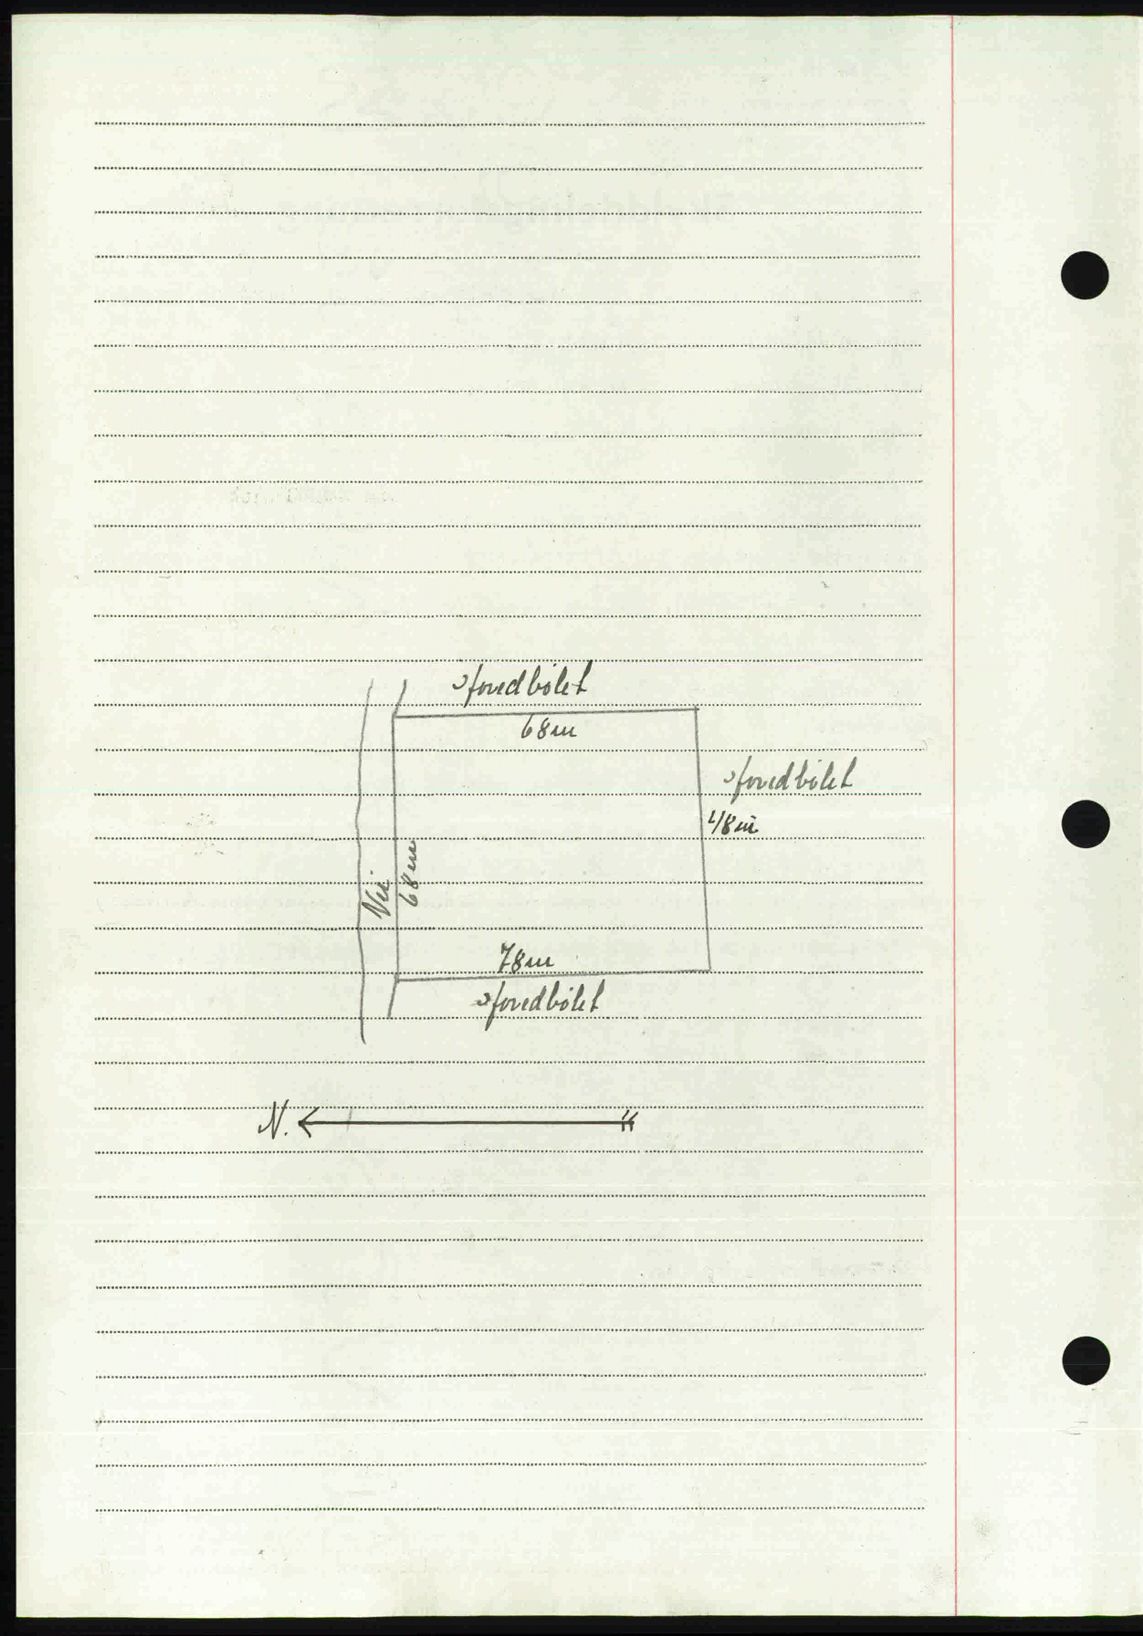 Hovedbølet
68m
Hovedbølet
48m
Vei
68m
78m
Hovedbølet
N.